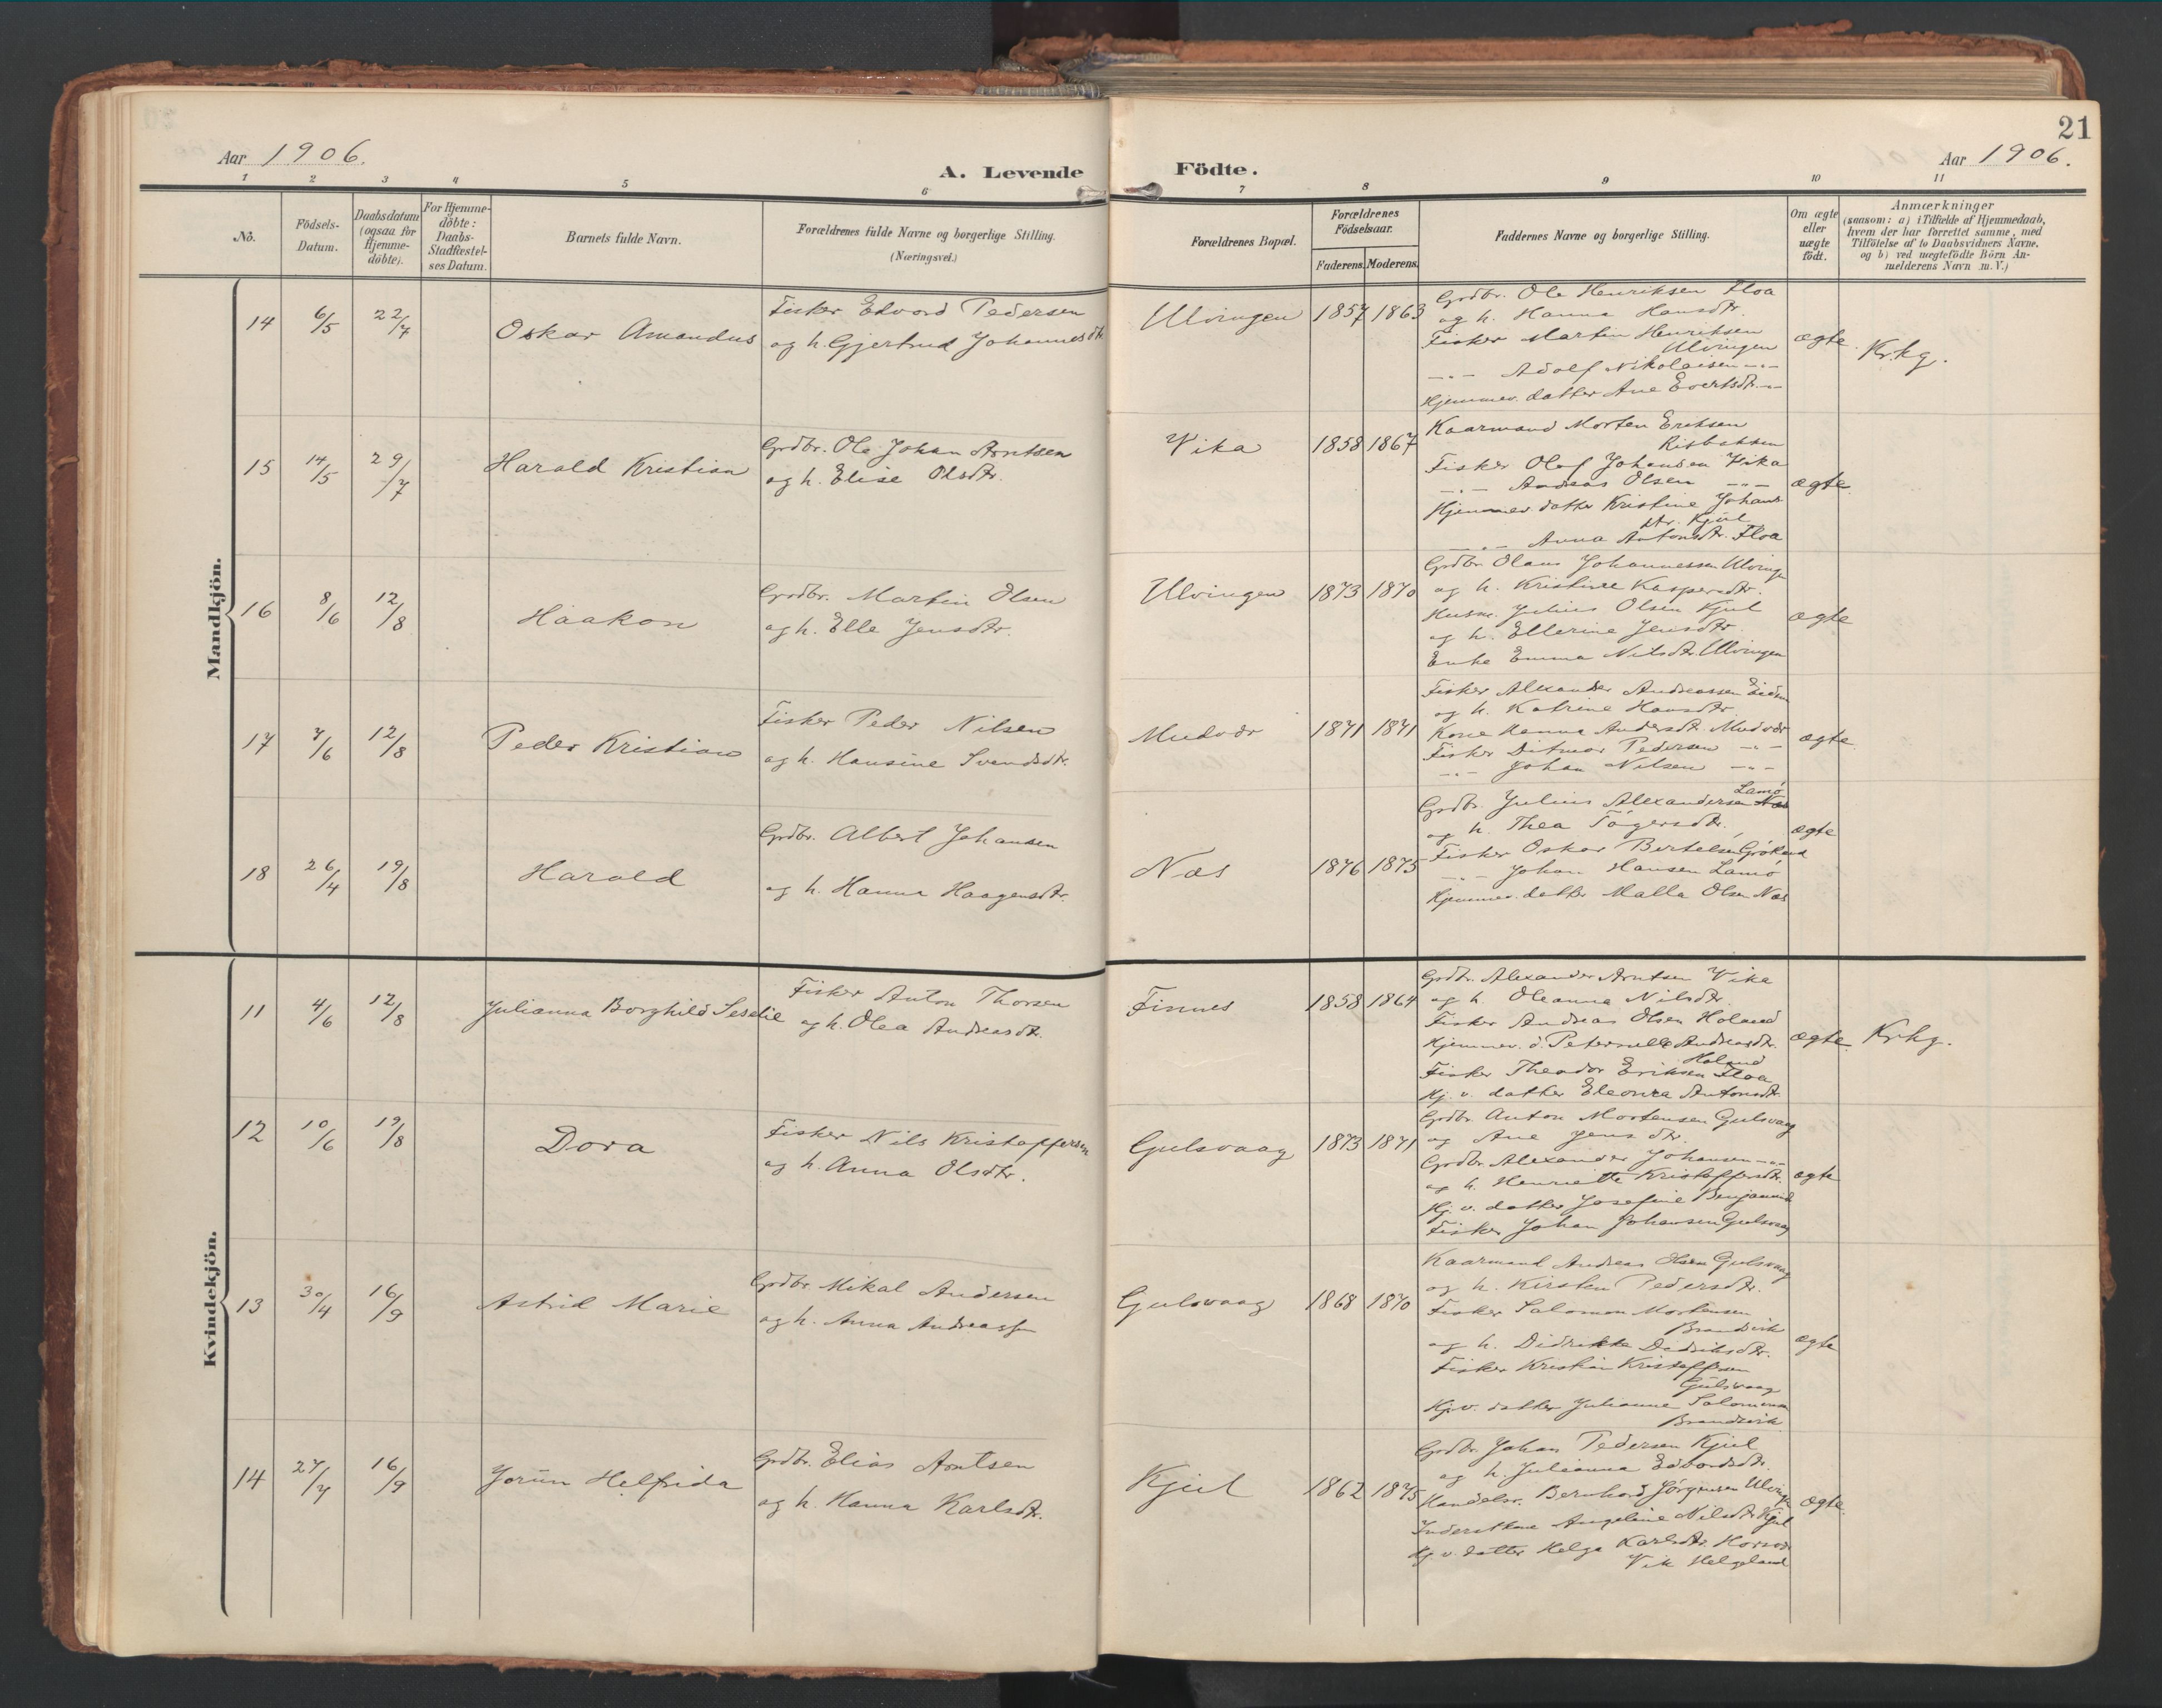 21
Aar 1906.
Aar 1906.
A. Levende Födte.
1 2 3 4 5 6 7 8 9 10 11
No.
Födsels-
Datum.
Daabsdatum
(ogsaa for
Hjemme-
döbte).
For Hjemme-
döbte:
Daabs-
Stadfæstel-
ses Datum.
Barnets fulde Navn.
Forældrenes fulde Navne og borgerlige Stilling.
(Næringsvei.)
Forældrenes Bopæl.
Forældrenes
Födselsaar.
Faderens. Moderens.
Faddernes Navne og borgerlige Stilling.
Om ægte
eller
uægte
födt.
Anmærkninger
(saasom: a) i Tilfælde af Hjemmedaab,
hvem der har forrettet samme, med
Tilföielse af to Daabsvidners Navne.
og b) ved uægtefödte Börn An-
melderens Navn m. V.)
Mandkjön.
14 6/5 22/7 Oskar Amandus
Fisker Edvard Pedersen
og h. Gjertrud Johannesdtr.
Ulvingen 1857 1863
Grdbr. Ole Henriksen Floa
og h. Hanna Hansdtr.
Fisker Martin Henriksen
Ulvingen
-"- Adolf Nikolaisen -"-
Hjemmev. datter Ane Evertsdtr. -"-
ægte.
Krkg.
15 14/5 29/7 Harald Kristian
Grdbr. Ole Johan Arntsen
og h. Elise Olsdtr.
Vika 1858 1867
Kaarmand Morten Eriksen
Risbakken
Fisker Olaf Johansen Vika
-"- Andreas Olsen -"-
Hjemmev. datter Kristine Johans
dtr. Kjul
-"- Anna Antonsdtr. Floa
ægte.
16 8/6 12/8 Haakon
Grdbr. Martin Olsen
og h. Elle Jensdtr.
Ulvingen 1873 1870
Grdbr. Olaus Johannessen Ulvingen
og h. Kristine Kaspersdtr.
Husm. Julius Olsen Kjul
og h. Ellerine Jensdtr.
Enke Emma Nilsdtr. Ulvingen
ægte
17 7/6 12/8 Peder Kristian
Fisker Peder Nilsen
og h. Hansine Svendsdtr.
Mudvær 1871 1871
Fisker Alexander Andreassen
og h. Katrine Hansdtr.
Kone Hanna Andersdtr. Mudvær
Fisker Ditmar Pedersen -"-
-"- Johan Nilsen -"-
ægte.
18 26/4 19/8 Harald
Grdbr. Albert Johansen
og h. Hanna Haagensdtr.
Næs 1876 1875
Lamø
Grdbr. Julius Alexandersen Næs
og h. Thea Tögersdtr.
Fisker Oskar Bertelsen
-"- Johan Hansen Lamö
Hjemmev. datter Malla Olsen Næs
ægte
Kvindekjön.
11 4/6 12/8 Julianna Borghild Seselie
Fisker Anton Thorsen
og h. Olea Andreasdtr.
Finnes 1858 1864
Grdbr. Alexander Arntsen Vika
og h. Oleanna Nilsdtr.
Fisker Andreas Olsen Holand
Hjemmev. d. Peternelle Andreasdtr.
Holand
Fisker Theodor Eriksen Floa
Hj. v. datter Eleonra Antonsdtr.
ægte.
Krkg.
12 10/6 19/8 Dora
Fisker Nils Kristoffersen
og h. Anna Olsdtr.
Gulsvaag 1873 1871
Grdbr. Anton Mortensen Gulsvaag
og Ane Jensdtr.
Grdbr. Alexander Johansen -"-
og h. Henriette Kristoffersdtr.
Hj. v. datter Josefine Benjaminsd
Fisker Johan Johansen Gulsvaag
ægte
13 30/4 16/9 Astrid Marie
Grdbr. Mikal Andersen
og h. Anna Andreassen
Gulsvaag 1868 1870
Kaarmand Andreas Olsen Gulsvaag
og h. Kirsten Pedersdtr.
Fisker Salomon Mortensen
Brandvik
og h. Didrikke Didriksdtr.
Fisker Kristian Kristoffersen
Gulsvaag
Hj. v. datter Julianne Salomonsen
Brandvik
ægte
14 27/7 16/9 Jorun Helfrida
Grdbr. Elias Arntsen
og h. Hanna Karlsdtr.
Kjul 1862 1875
Grdbr. Johan Pedersen Kjul
og h. Julianna Edvardsdtr.
Handelsr. Bernhard Jörgensen Ulvingen
Angeline Nilsdtr. Kjul
Hj. v. datter Helga Karlsdtr.
Vik Helgeland
ægte.